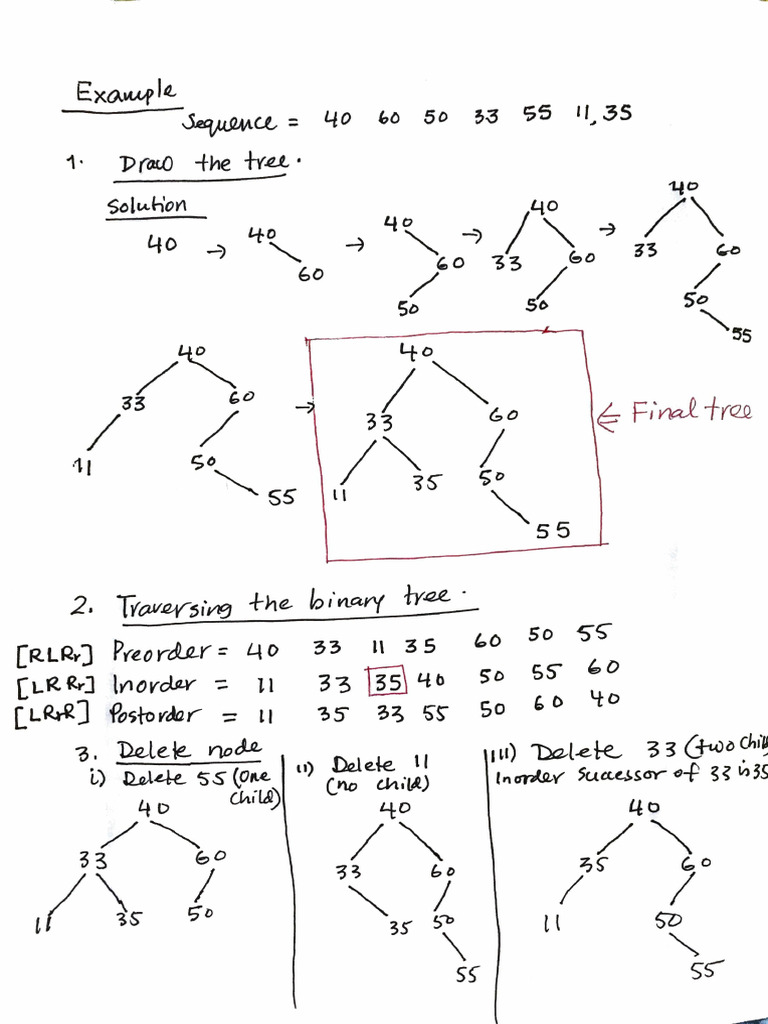 Example
Sequence = 40 60 50 33 55 11, 35
1. Draw the tree.
Solution
40 → 40 → 40 → 40 → 40
60 60 33 60 33 60
50 50 50
55
40 → 40
33 60 33 60 ⇐ Final tree
11 50 11 35 50
55 55
2. Traversing the binary tree.
[RLRr] Preorder = 40 33 11 35 60 50 55
[LRRr] Inorder = 11 33 35 40 50 55 60
[LRrR] Postorder = 11 35 33 55 50 60 40
3. Delete node
i) Delete 55 (one child)
40
33 60
11 35 50
ii) Delete 11
(no child)
40
33 60
35 50
55
iii) Delete 33 (two chil
Inorder Successor of 33 is 35
40
35 60
11 50
55